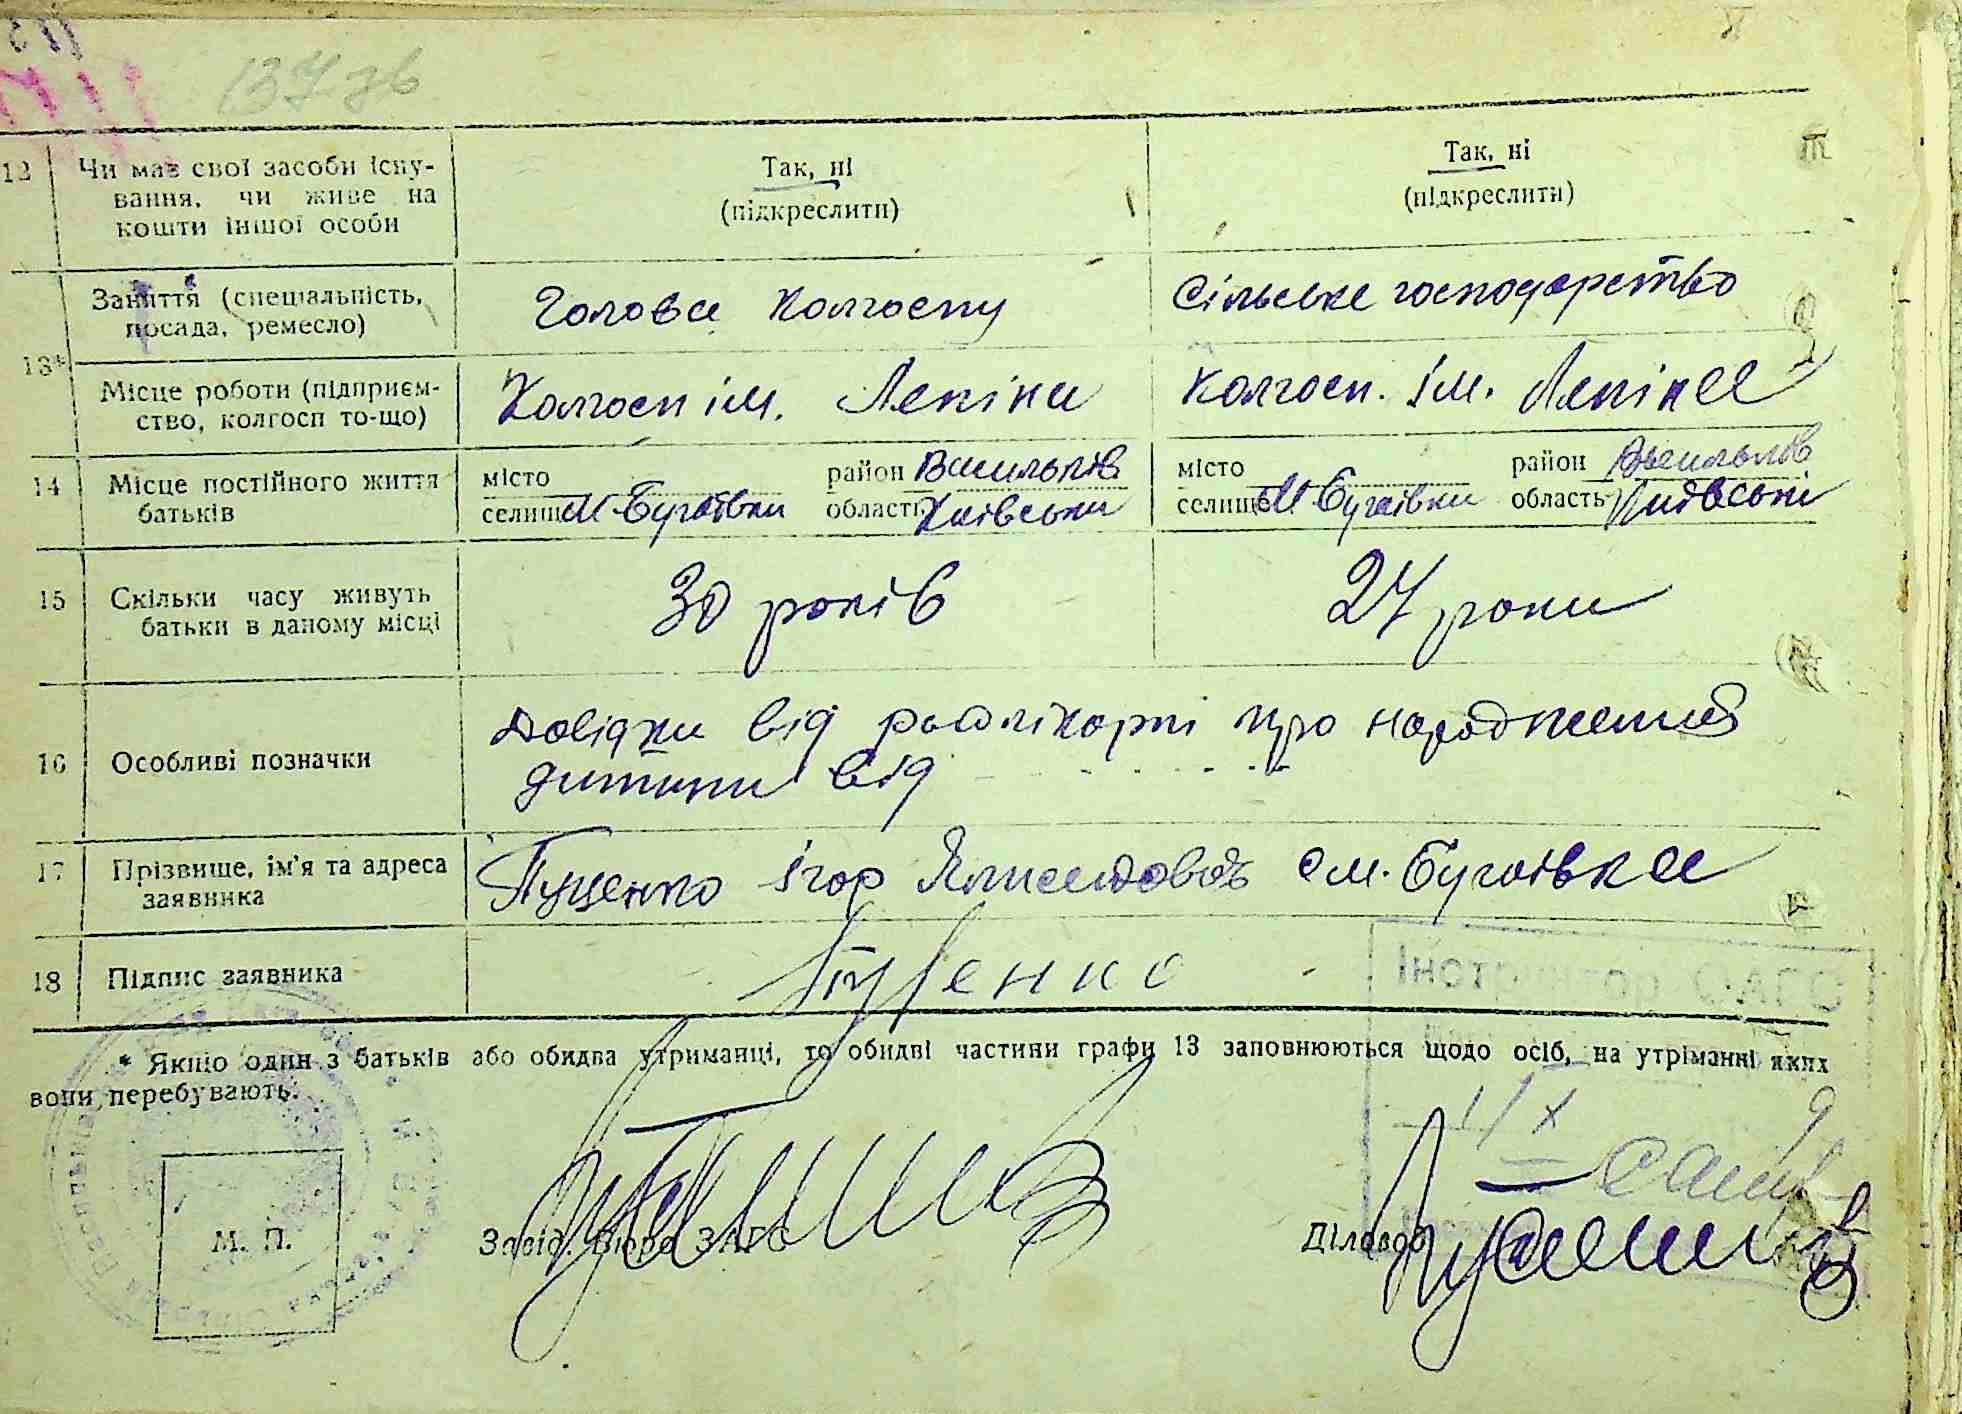 137 зв
12 Чи має свої засоби існу-
вання, чи живе на
кошти іншої особи
Так, ні
(підкреслити)
Так, ні
(підкреслити)
13*
Заняття (спеціальність,
посада, ремесло)
Голова колгоспу
Сільське господарство
Місце роботи (підприєм-
ство, колгосп то-що)
Колгосп ім. Леніна
Колгосп. ім. Леніна
14 Місце постійного життя
батьків
місто район Васильків
селище М-Бугаївка область Київська
місто район Васильків
селище М Бугаївка область Київські
15 Скільки часу живуть
батьки в даному місці
30 років
27 роки
16 Особливі позначки
Довідки від про народження
дитини від
17 Прізвище, ім'я та адреса
заявника
Луценко Ігор с м. Бугаївка
18 Підпис заявника
Луценко
* Якщо один з батьків або обидва утриманці, то обидві частини графи 13 заповнюються щодо осіб, на утріманні яких
вони перебувають.
М. П.
Завід. Бюро ЗАГС
Діловод